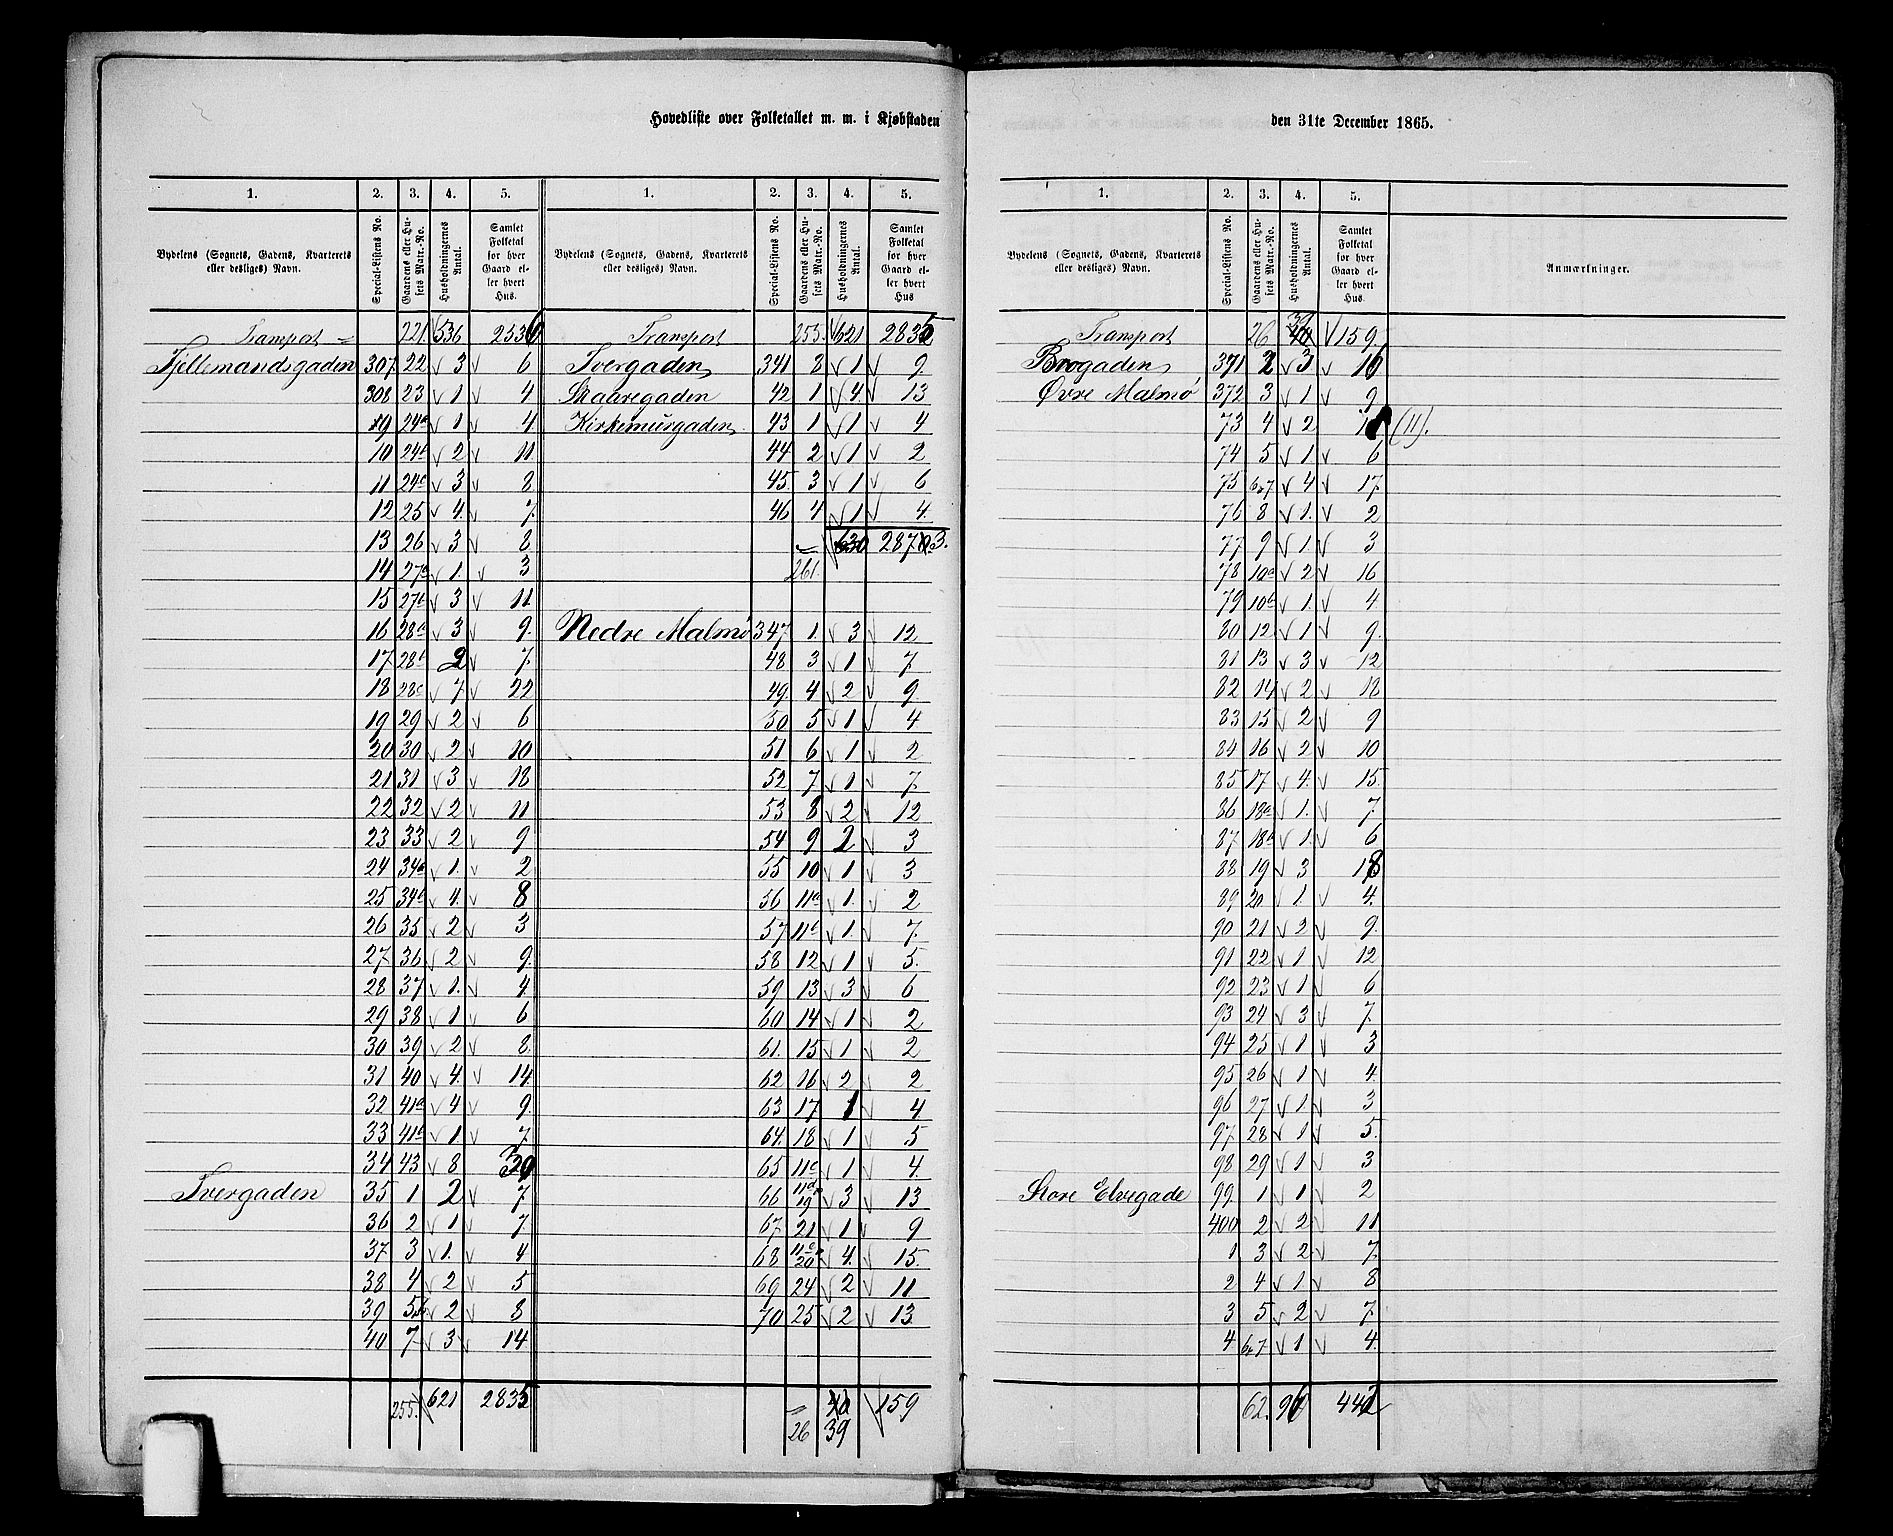 Hovedliste over Folketallet m. m. i Kjøbstaden
den 31te December 1865.
1. 2. 3. 4. 5.
Bydelens (Sognets, Gadens, Kvarterets eller desliges) Navn. Special-Listens No. Gaardens eller Husets Matr.-No. Husholdningernes Antal. Samlet Folketal for hver Gaard eller hvert Hus.
Transport 221. 536
Fjellsmandsgaden 307 22 3 6
308 23 1 4
9 24a 1 4.
10 24b 2 11
11 24c 3 8
12 25 4. 7.
13 26 3 8
14 27a 1. 3
15 27b 3 11
16 28a 3 9.
17 28b 2 7.
18 28c 7. 22
19 29 2 6
20 30 2 10
21 31 3 18
22 32 2 11
23 33 2 9
24 34a 1. 2
25 34b 4. 8
26 35 2 3
27 36 2 9.
28 37 1. 4.
29 38 1 6
30 39 2 8.
31 40 4. 14.
32 41a 4 9.
33 41b 1 7
34 43 8
Tvergaden 35 1 2 7
36 2 1 7.
37 3 1. 4
38 4 2 5
39 2 8
40 7 3 14
255. 621 2835
1. 2. 3. 4. 5.
Bydelens (Sognets, Gadens, Kvarterets eller desliges) Navn. Special-Listens No. Gaardens eller Husets Matr.-No. Husholdningernes Antal. Samlet Folketal for hver Gaard eller hvert Hus
Transport 255. 621 2835
Tvergaden 341 8 1 9.
Skaaregaden 42 1 4 13
Kirkemurgaden 43 1 1 4
44 2 1 2
45. 3 1 6
46 4 1 4.
630 2873.
261.
Nedre Malmø 347 1. 3 12
48 3 1 7.
49. 4 2 9.
50 5 1 4
51 6 1 2
52 7 1 7.
53 8 2 12
54 9 2 3
55 10 1 3
56 11a 1. 2
57 11b 1. 7.
58 12 1 5.
59 13 3 6
60 14 1 2
61. 15 1 2
62 16 2 2
63 17 1 4
64. 18 1 5
65 11c 1 4.
66 11d 19 3 13
67. 21 1 9
68 11e 20 4. 15.
69 24 2 11
70 25 2 13.
40 159
26 39
1. 2. 3. 4. 5.
Bydelens (Sognets, Gadens, Kvarterets eller desliges) Navn. Special-Listens No. Gaardens eller Husets Matr.-No. Husholdningernes Antal. Samlet Folketal for hver Gaard eller hvert Hus Anmærkninger.
Transport 26 39 40 159.
Brogaden 371 2 3 16
Øvre Malmø 372 3 1 9
73 4 2 (11).
74 5 1. 6
75 6&7 4 17.
76 8 1. 2
77 9 1 3
78 10a 2 16
79 10b 1. 4.
80 12 1 9.
81 13 3 12
82 14 2 18
83 15 2 9
84 16 2 10
85 17 4. 15.
86 18a 1. 7.
87. 18b 1. 6
88 19 3 18
89 20 1. 4.
90 21 2 9.
91 22 1 12
92 23 1 6
93 24 3 7.
94 25 1 3
95 26 1 4.
96 27 1 3
97. 28 1 5.
98 29 1 3
Store Elvegade 99. 1 1 2
400 2 2 11
1 3 2 7.
2 4 1 8
3 5 2 7.
4 6&7 1 4.
62.